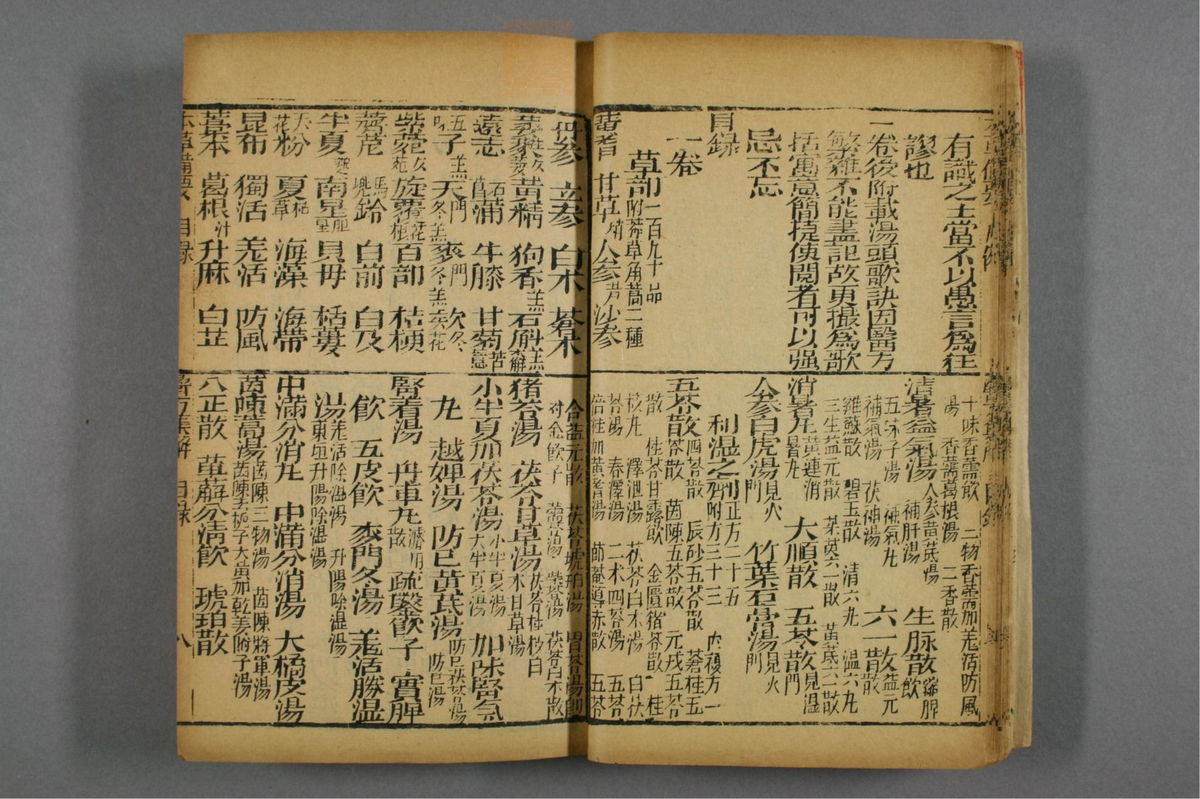 有識之士當不以愚言為狂
謬也
一卷後附載湯頭歌訣因醫方
繁雜不能盡記故更撮為歌
括寓意簡捷使閱者可以强
忌不忘
目錄
一卷
草部附莽草角蒿二種一百九十一品
黃耆 甘草梢 人參蘆 沙參
丹參 玄參 白朮 蒼朮
萎蕤 黃精 狗脊 石斛
遠志 石菖蒲 牛膝 甘菊
五味子 天門冬 麥門冬 款冬花
紫菀 旋覆花根 百部 桔梗
馬兜鈴 白前 白及
半夏 南星 貝母 栝蔞
天花粉 夏枯草 海藻 海帶
昆布 獨活 羌活 防風
藁本 葛根汁 升麻 白芷
本草備要 目錄
十味香薷飲 二物香薷加羌活防風
湯 香薷葛根湯 二香散
清暑益氣湯 人參黃芪湯 補肝湯 生脉散
五味子湯 補氣丸
補氣湯 茯神湯 六一散 益元散
雞蘇散 碧玉散 清六丸 溫六丸
三生益元散 茱萸六一散 黃芪六一散
消暑丸 黃連消暑丸 大順散 五苓散見濕門
人參白虎湯見火門 竹葉石膏湯見火門
利濕之劑正方二十五 附方三十三
五苓散 四苓散 辰砂五苓散 蒼桂五
苓散 茵陳五苓散 元戎五苓
散 桂苓甘露飲 金匱猪苓散 桂
苓丸 澤泄湯 茯苓白朮湯 白茯
苓湯 春澤湯 二朮四苓湯 五苓
倍桂加黃耆湯 節菴導赤散 五苓
合益元散 茯苓琥珀湯 胃苓湯
對金飲子 柴苓湯 茯苓白朮散
猪苓湯 茯苓甘草湯 茯苓桂枝白朮甘草湯
小半夏加茯苓湯 小半夏湯 大半夏湯 加味腎氣
丸 越婢湯 防已黃芪湯 防已茯苓湯 防已湯
腎着湯 舟車丸 疏鑿飲子 實脾
飲 五皮飲 麥門冬湯 羌活勝濕
湯 羌活除濕湯 升陽除濕湯
中滿分消丸 中滿分消湯 大橘皮湯
茵陳蒿湯 茵陳三物湯 茵陳將軍湯 茵陳梔子大黃加乾姜附子湯
八正散 萆薢分清飲 琥珀散
醫方集解 目錄 八